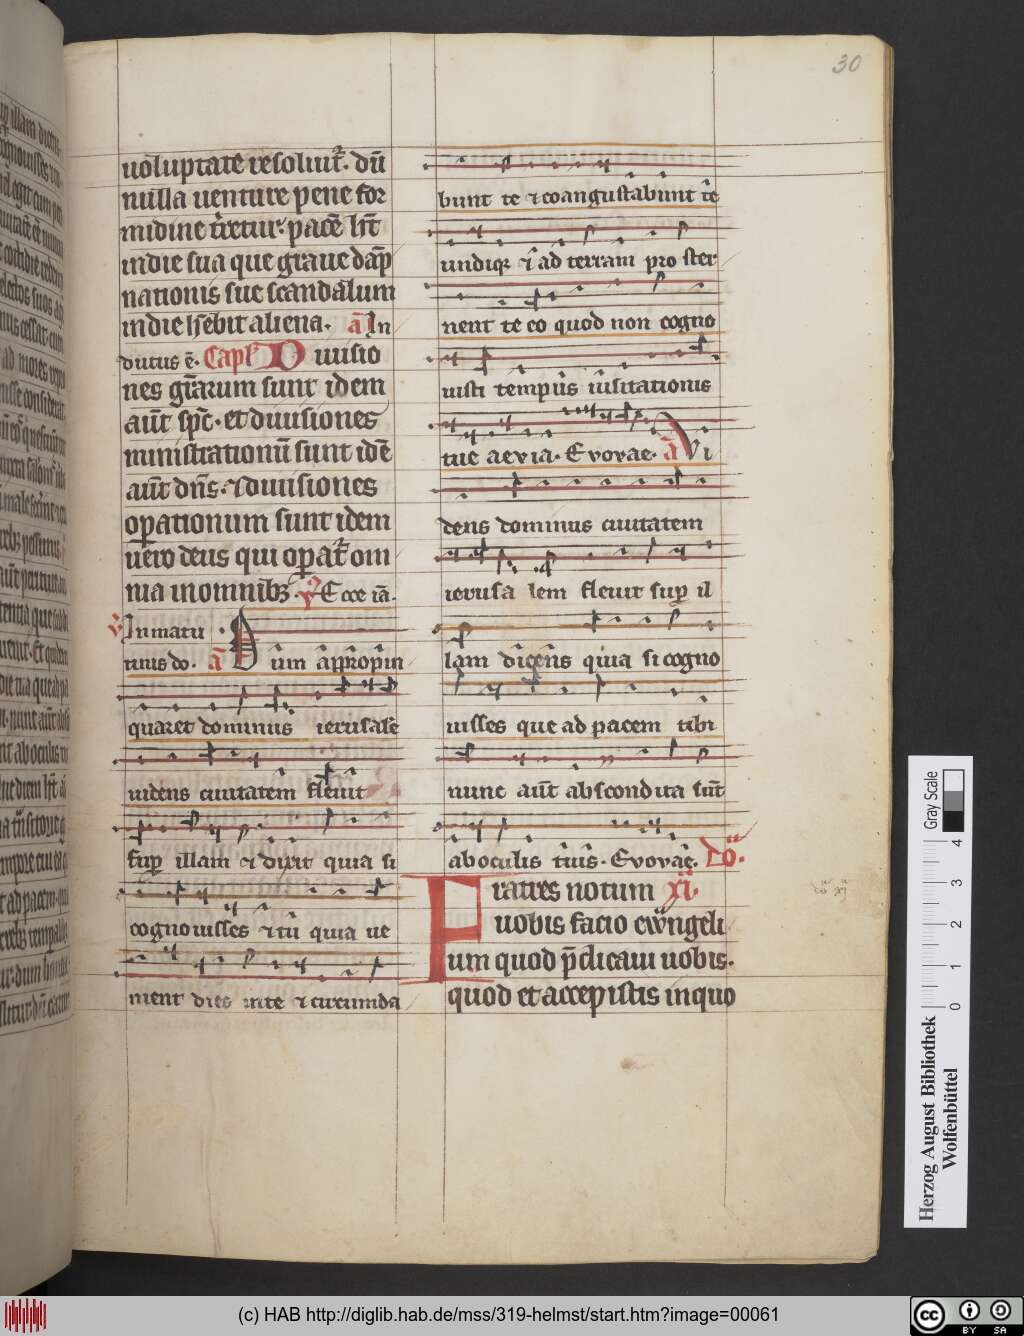 30
uoluptate resoluit᷑. dū
nulla uenture pene for
midine t̄retur. pacē h̄t
in die sua que graue dāp
nationis sue scandalum
in die h̄ebit aliena. ā In
dutus ē. Capl̄ Diuisio
nes gr̄arum sunt idem
aūt sp̄c. et diuisiones
ministrationū sunt idē
aūt dn̄s. ⁊ diuisiones
oꝑationum sunt idem
uero deus qui oꝑat᷑ om
nia in omnibꝫ. Ecce iā.
℣ In matu
tinis do. ā Cūm āppropin
quaret dominus ierusalē
uidens ciuitatem fleuit
suꝑ illam ⁊ dixit quia si
cognouisses ⁊ tū quia ue
nient dies inte ⁊ circumda
bunt te ⁊ coangustabunt te
undiqꝫ ⁊ ad terram pro ster
nent te eo quod non cogno
uisti tempus uisitationis
tue aevia. Evovae. ā Vi
dens dominus ciuitatem
ierusa lem fleuit suꝑ il
lam dicens quia si cogno
uisses que ad pacem tibi
nunc aūt abscondita sūt
ab oculis tuis. Evovae. Dō.
Fratres notum xi.
uobis facio ewangeli
um quod p̄dicaui uobis.
quod et accepistis in quo
Herzog August Bibliothek
Wolfenbüttel
Gray Scale
0 1 2 3 4
(c) HAB http://diglib.hab.de/mss/319-helmst/start.htm?image=00061
cc BY SA